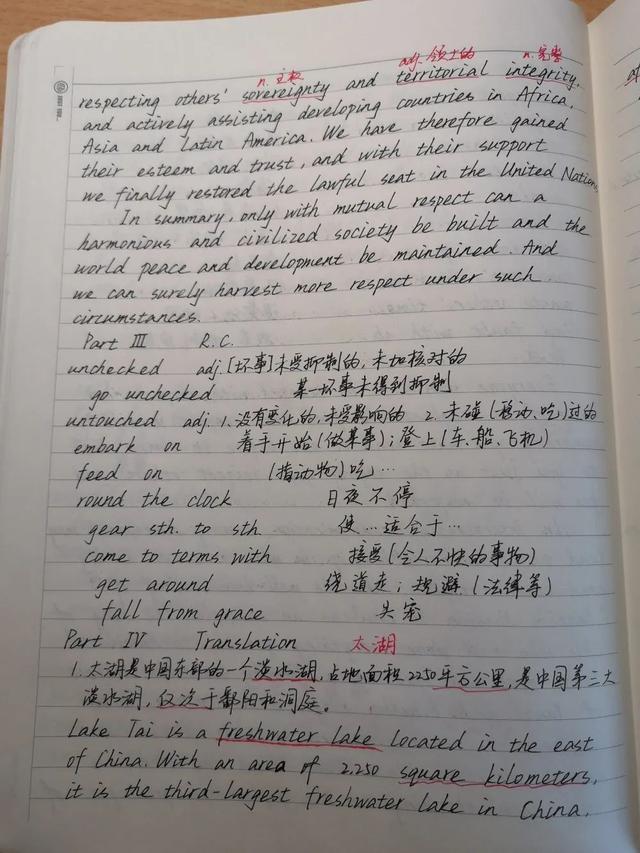 n. 主权 adj. 领土的 n. 完整
respecting others' sovereignty and territorial integrity,
and actively assisting developing countries in Africa,
Asia and Latin America. We have therefore gained
their esteem and trust, and with their support
we finally restored the lawful seat in the United Nations.
In summary, only with mutual respect can a
harmonious and civilized society be built and the
world peace and development be maintained. And
we can surely harvest more respect under such
circumstances.
Part III R.C.
unchecked adj. [坏事]未受抑制的, 未加核对的
go unchecked 某一坏事未得到抑制
untouched adj. 1. 没有变化的, 未受影响的 2. 未碰(移动、吃)过的
embark on 着手开始(做某事); 登上(车、船、飞机)
feed on (指动物)吃…
round the clock 日夜不停
gear sth. to sth. 使…适合于…
come to terms with 接受(令人不快的事物)
get around 绕道走; 规避(法律等)
fall from grace 失宠
Part IV Translation 太湖
1. 太湖是中国东部的一个淡水湖, 占地面积2250平方公里, 是中国第三大
淡水湖, 仅次于鄱阳和洞庭。
Lake Tai is a freshwater lake located in the east
of China. With an area of 2,250 square kilometers,
it is the third-largest freshwater lake in China,